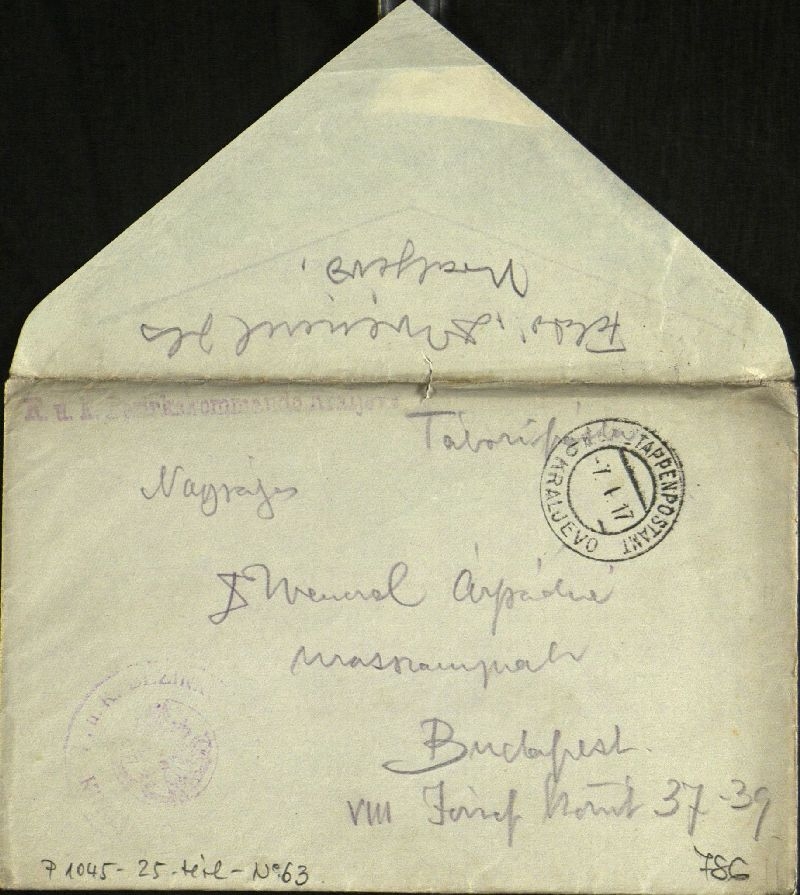 Feladó: Dr Wenczel
Kraljevo.
K. u. k. Bezirkskommando Kraljevo
Tábori
K. u. K. ETAPPENPOSTAMT
KRALJEVO
-7. I. 17
Nagysás
Dr Wenczel Árpádné
urasszonynak
Budapest.
VIII József körút 37-39
K. u. K. BEZIRK
P 1045-25-tétel-No63
786